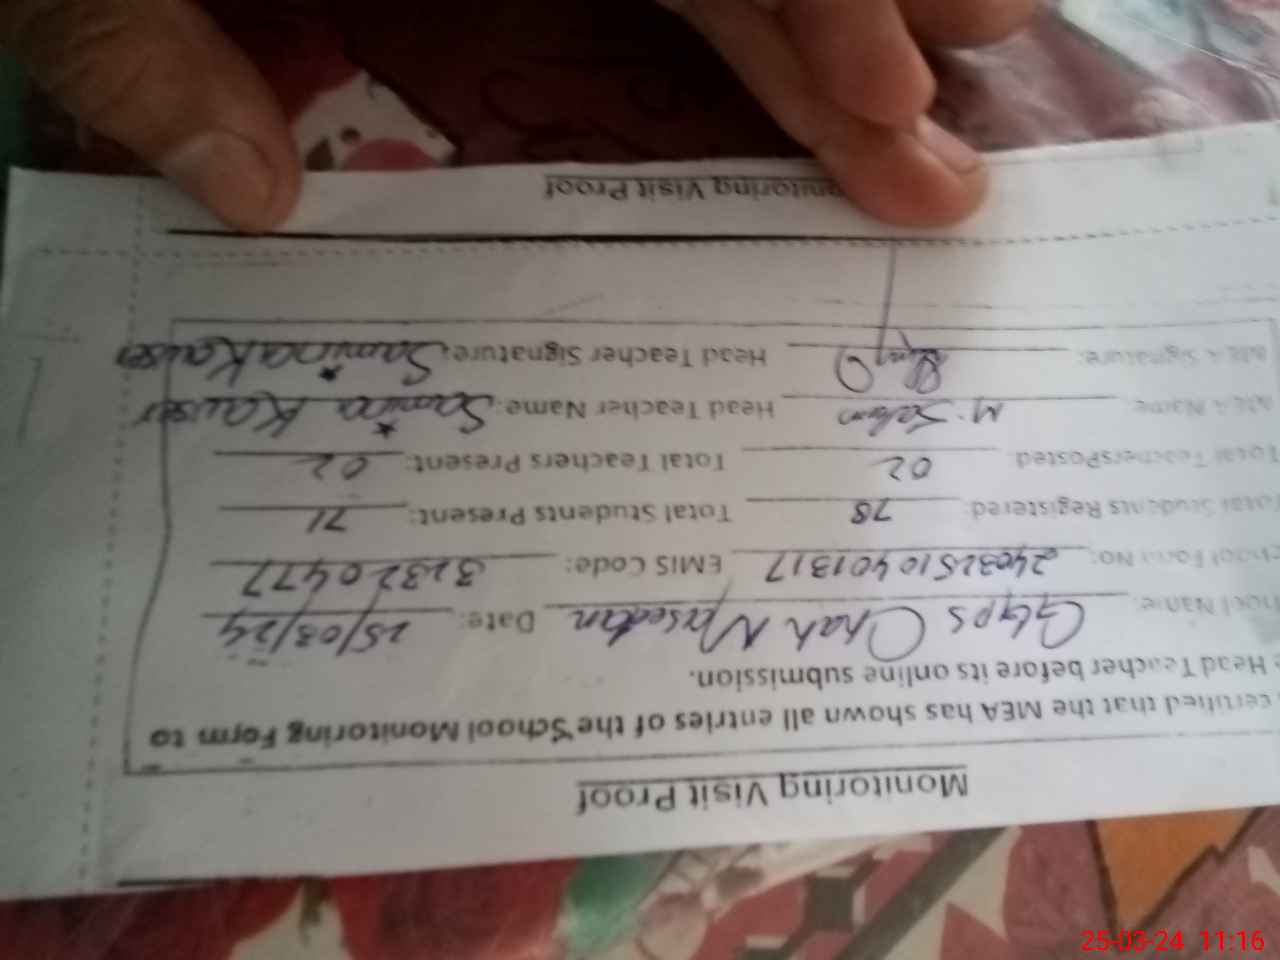 Monitoring Visit Proof
certified that the MEA has shown all entries of the School Monitoring Form to
Head Teacher before its online submission.
Name: Ggps Chak Date: 25/03/24
No: 24032510401317 EMIS Code: 31320477
Total Students Registered: 78 Total Students Present: 71
Total TeachersPosted: 02 Total Teachers Present: 02
MEA Name: M. Salam Head Teacher Name: Samina Kauser
MEA Signature: Head Teacher Signature: Samina Kauser
Monitoring Visit Proof
25-03-24 11:16